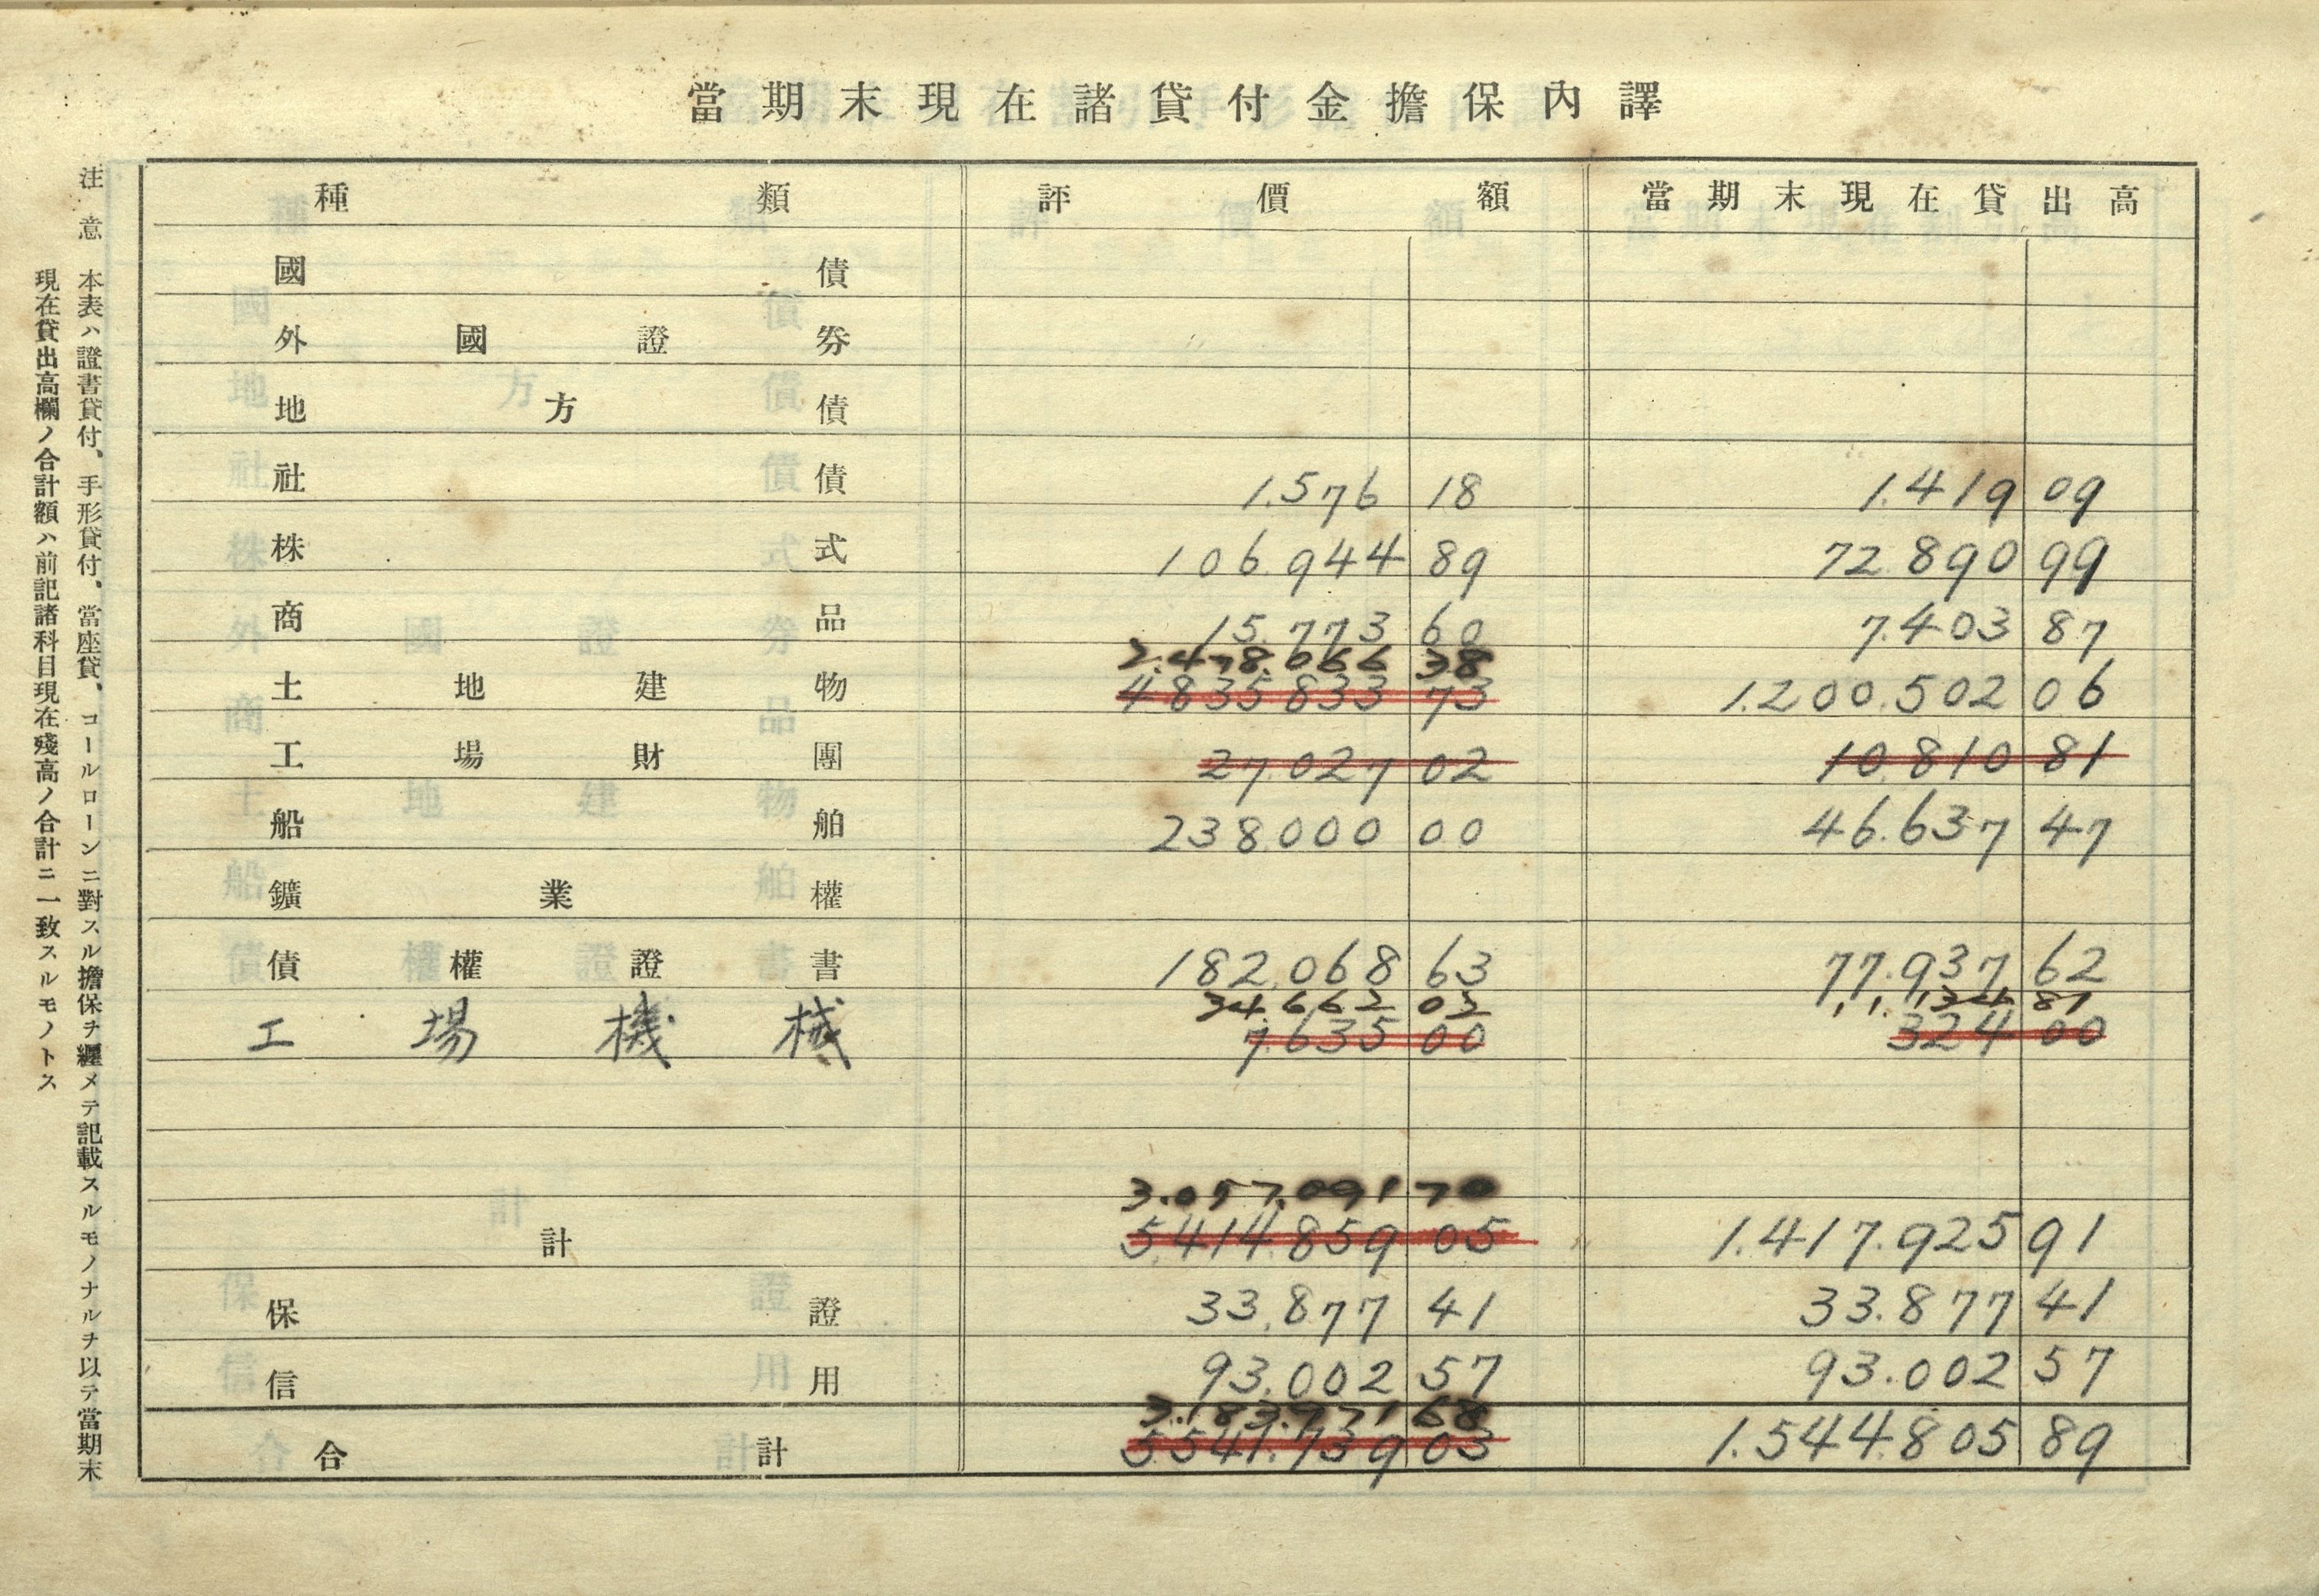 當期末現在諸貸付金擔保內譯
種類 評價額 當期末現在貸出高
國債
外國證券
地方債
社債 1.576 18 1.419 09
株式 106.944 89 72.890 99
商品 15.773 60 7.403 87
2.478.066 38
土地建物 4835833 73 1.200.502 06
工場財團 27.027 02 10.810 81
船舶 238.000 00 46.637 47
鑛業權
債權證書 182.068 63 77.937 62
34.662 02 11.134 81
工場機械 7.635 00 324 00
3.057.091 70
計 5.414.859 05 1.417.925 91
保證 33.877 41 33.877 41
信用 93.002 57 93.002 57
3.183.971 68
合計 5.541.739 03 1.544.805 89
注意 本表ハ證書貸付、手形貸付、當座貸、コールローンニ對スル擔保ヲ纒メテ記載スルモノナルヲ以テ當期末
現在貸出高欄ノ合計額ハ前記諸科目現在殘高ノ合計ニ一致スルモノトス